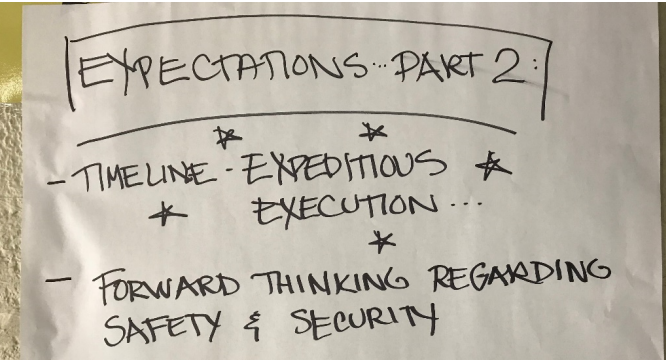 EXPECTATIONS... PART 2:
- TIMELINE - EXPEDITIOUS
EXECUTION...
- FORWARD THINKING REGARDING
SAFETY & SECURITY